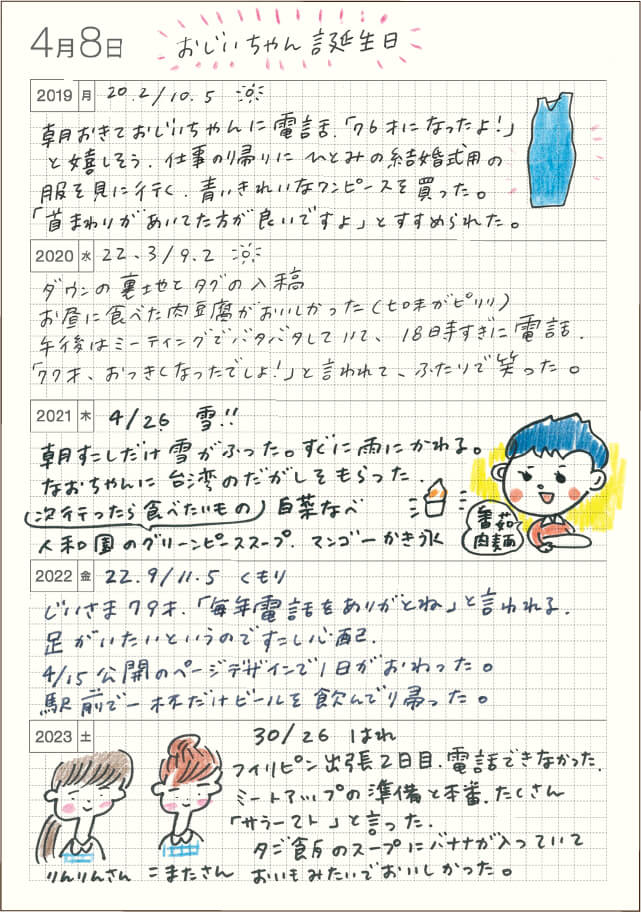 4月8日 おじいちゃん誕生日
2019 月 20.2/10.5
朝おきておじいちゃんに電話.「76才になったよ!」
と嬉しそう. 仕事の帰りにひとみの結婚式用の
服を見に行く. 青いきれいなワンピースを買った。
「首まわりがあいてた方が良いですよ」とすすめられた。
2020 水 22.3/9.2
ダウンの裏地とタグの入稿
お昼に食べた肉豆腐がおいしかった(七味がピリリ)
午後はミーティングでバタバタしていて、18時すぎに電話.
「77才、おっきくなったでしょ!」と言われて、ふたりで笑った。
2021 木 4/26 雪!!
朝すこしだけ雪がふった。すぐに雨にかわる。
なおちゃんに台湾のだがしをもらった.
次行ったら食べたいもの 白菜なべ
人和園のグリーンピーススープ. マンゴーかき氷
番茄
肉麺
2022 金 22.9/11.5 くもり
じいさま79才.「毎年電話をありがとね」と言われる.
足がいたいというのですこし心配.
4/15公開のページデザインで1日がおわった。
駅前で一杯だけビールを飲んで帰った。
2023 土 30/26 はれ
フィリピン出張2日目.電話できなかった.
ミートアップの準備と本番.たくさん
「サラーマト」と言った.
夕ご飯のスープにバナナが入っていて
おいもみたいでおいしかった。
りんりんさん こまたさん